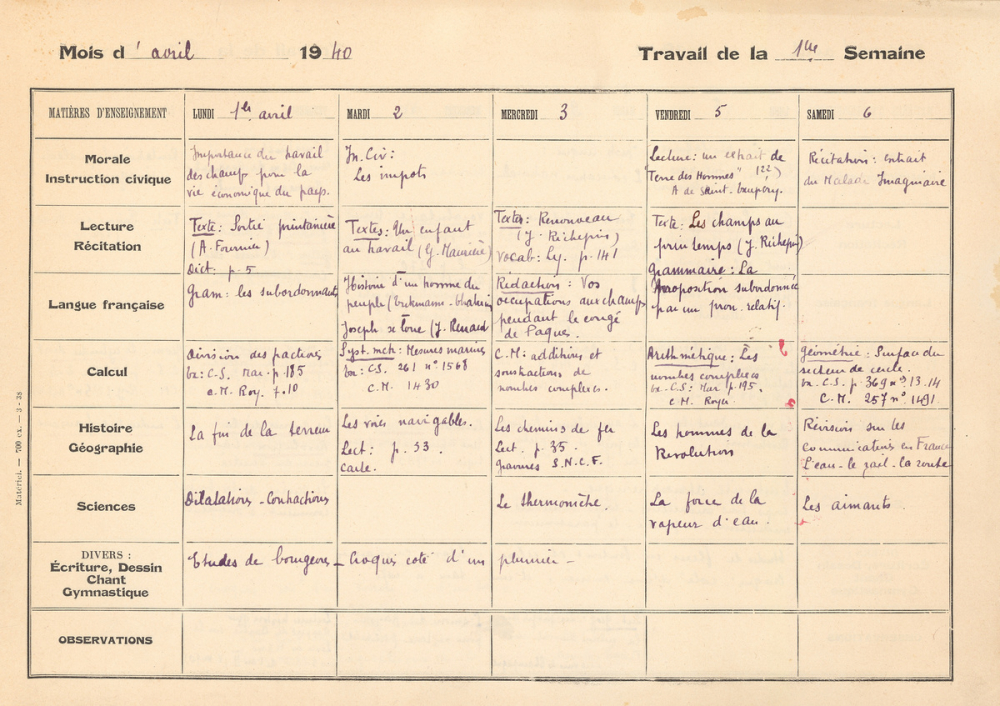 Mois d'avril 1940
Travail de la 1re Semaine
MATIÈRES D'ENSEIGNEMENT
LUNDI 1er avril
MARDI 2
MERCREDI 3
VENDREDI 5
SAMEDI 6
Morale
Instruction civique
Importance du travail
des champs pour la
vie économique du pays.
In. Civ:
Les impots
Lecture: un extrait de
"Terre des Hommes" (22)
A de Saint-Exupéry.
Récitation: extrait
du Malade Imaginaire
Lecture
Récitation
Texte: Sortie printanière
(A. Fournier)
Dict: p. 5
Textes: Un enfant
au travail (G. Maurière)
Textes: Renouveau
(J. Richepin)
Vocab: Ly. p. 141
Texte: Les champs au
printemps (J. Richepin)
Langue française
Gram: les subordonnants
Histoire d'un homme du
peuple (Erckmann-Chatrian
Joseph se loue (J. Renard
Rédaction: Vos
occupations aux champs
pendant le congé
de Paques.
Grammaire: La
proposition subordonnée
par un pron. relatif.
Calcul
Division des fractions
Ex: C.S. Mar. p. 185
C.M. Roy. 710
Syst. mét: Mesures marines
Ex: C.S. 261 n° 1568
C.M. 1430
C.M: additions et
soustractions de
nombres complexes.
Arithmétique: Les
nombres complexes
Ex. C.S: Mar p. 195.
C M Royer
Géométrie: Surface du
secteur de cercle.
Ex. C.S. p. 369 nos 13.14
C.M. 257 n° 1491
Histoire
Géographie
La fin de la terreur
Les voies navigables.
Lect: p. 33.
Carte.
Les chemins de fer
Lect. p. 35.
gravures S.N.C.F.
Les hommes de la
Révolution
Révision sur les
communications en France
L'eau - le rail - la route
Sciences
Dilatations - Contractions
Le thermomètre.
La force de la
vapeur d'eau.
Les aimants.
DIVERS:
Écriture, Dessin
Chant
Gymnastique
Etudes de bourgeons - Croquis coté d'un plumier -
OBSERVATIONS
Matériel. — 700 ex. — 3 - 38